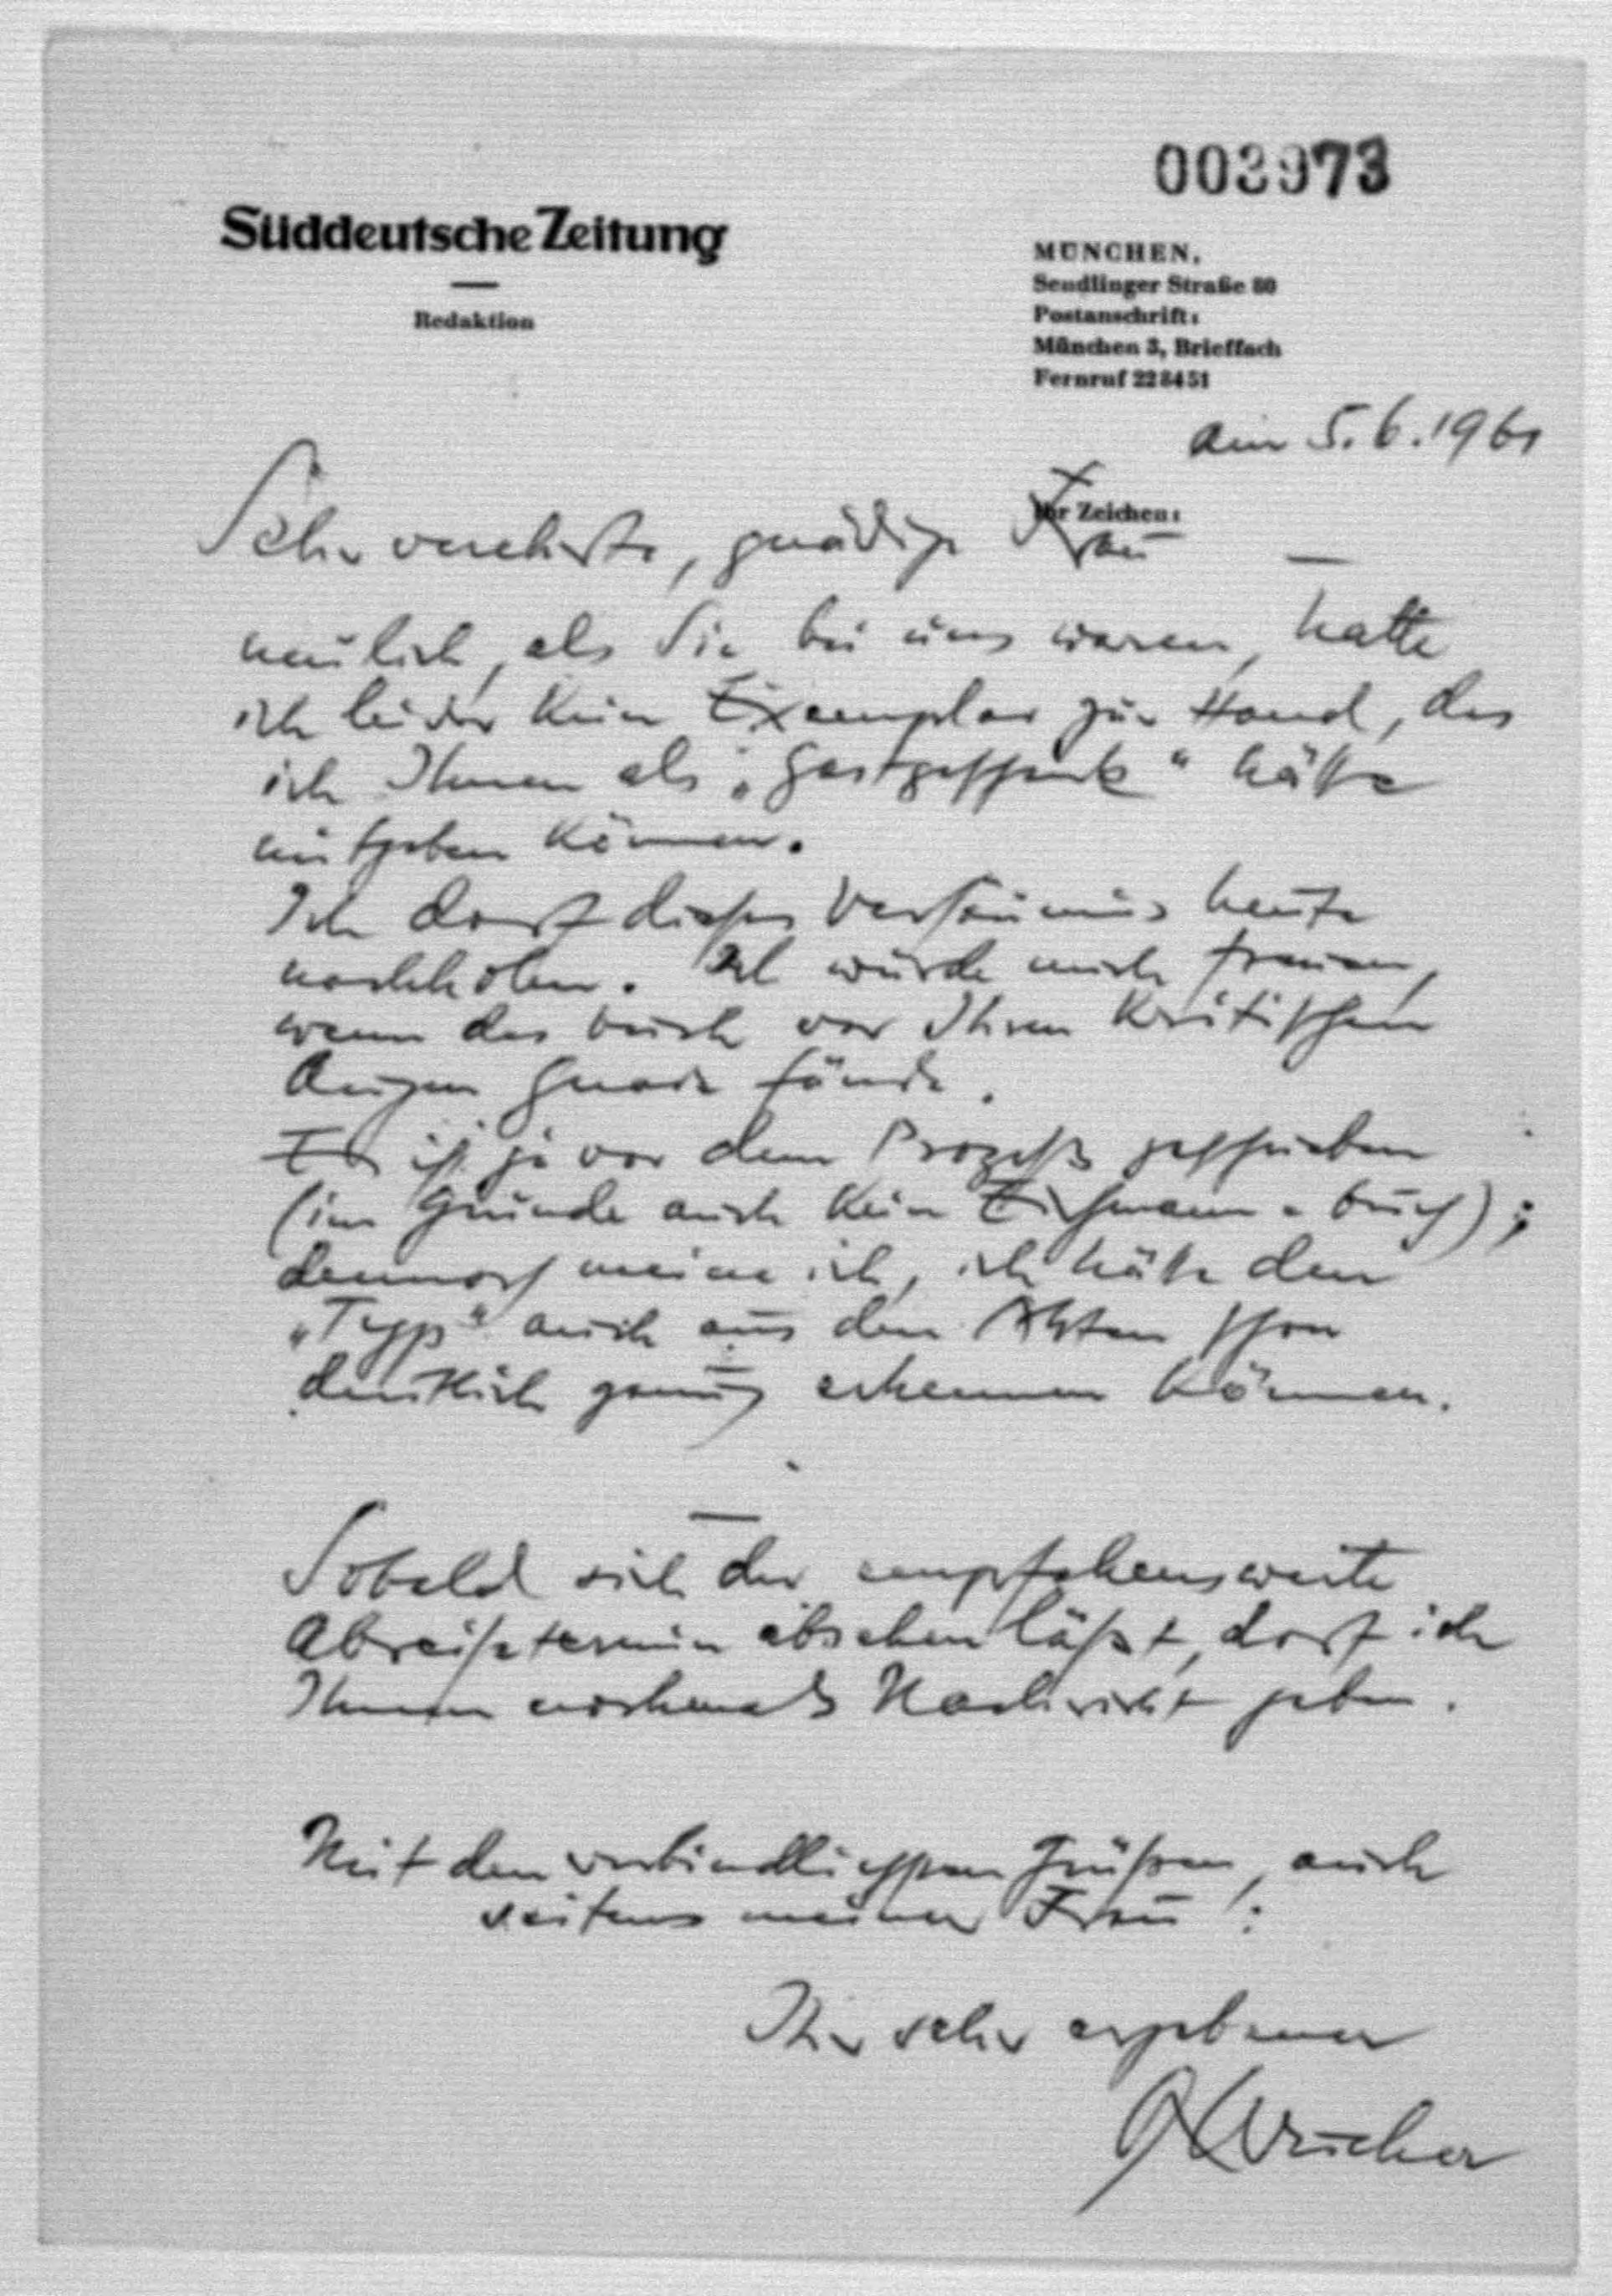 003973
Süddeutsche Zeitung
Redaktion
MÜNCHEN,
Sendlinger Straße 80
Postanschrift:
München 3, Brieffach
Fernruf 228451
am 5.6.1961
Ihr Zeichen:
Sehr verehrte, gnädige Frau —
neulich, als Sie bei uns waren, hatte
ich leider kein Exemplar zur Hand, das
ich Ihnen als „Gastgeschenk“ hätte
mitgeben können.
Ich darf dieses Versäumnis heute
nachholen. Ich würde mich freuen,
wenn das Buch vor Ihren kritischen
Augen Gnade fände.
Es ist ja vor dem Prozeß geschrieben
(im Grunde auch kein Eichmann-Buch);
dennoch meine ich, ich hätte den
„Typ“ auch aus den Akten schon
deutlich genug erkennen können.
—
Sobald sich der empfehlenswerte
Abreisetermin absehen läßt, darf ich
Ihnen nochmals Nachricht geben.
Mit den verbindlichsten Grüßen, auch
seitens meiner Frau!:
Ihr sehr ergebener